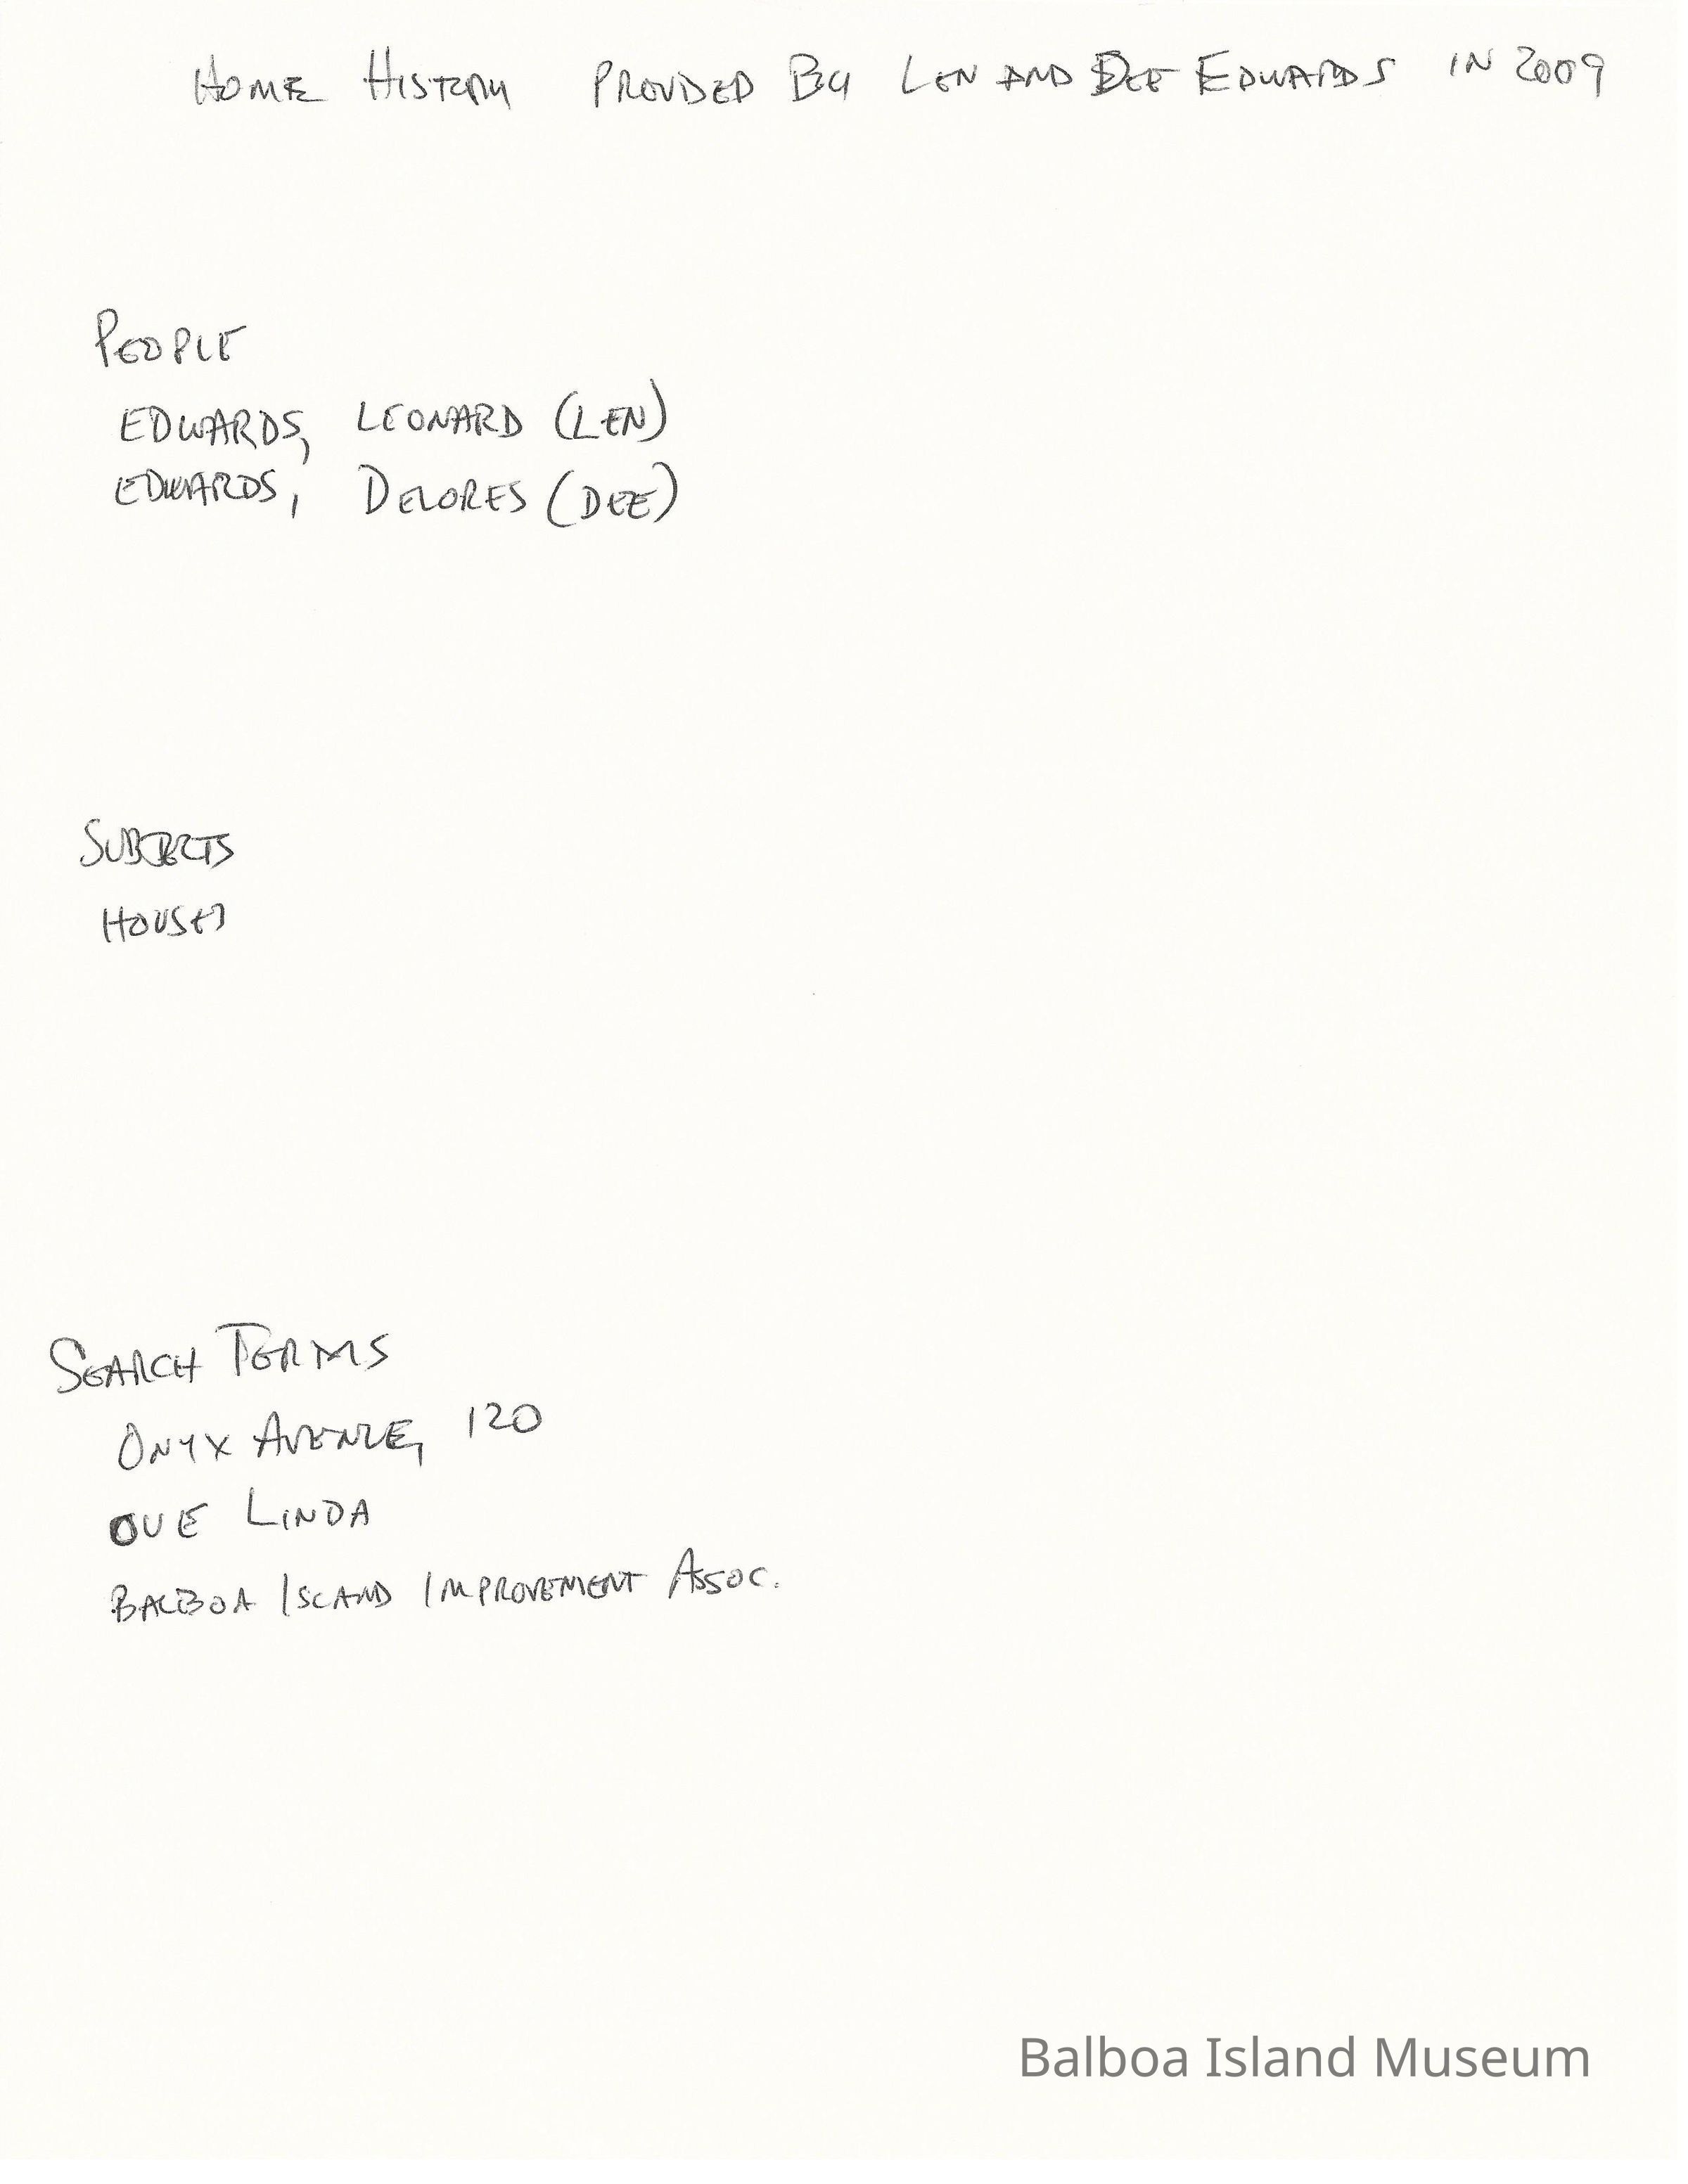 HOME HISTORY PROVIDED BY LEN AND DEE EDWARDS IN 2009
PEOPLE
EDWARDS, LEONARD (LEN)
EDWARDS, DELORES (DEE)
SUBJECTS
HOUSES
SEARCH TERMS
ONYX AVENUE, 120
OUE LINDA
BALBOA ISLAND IMPROVEMENT ASSOC.
Balboa Island Museum